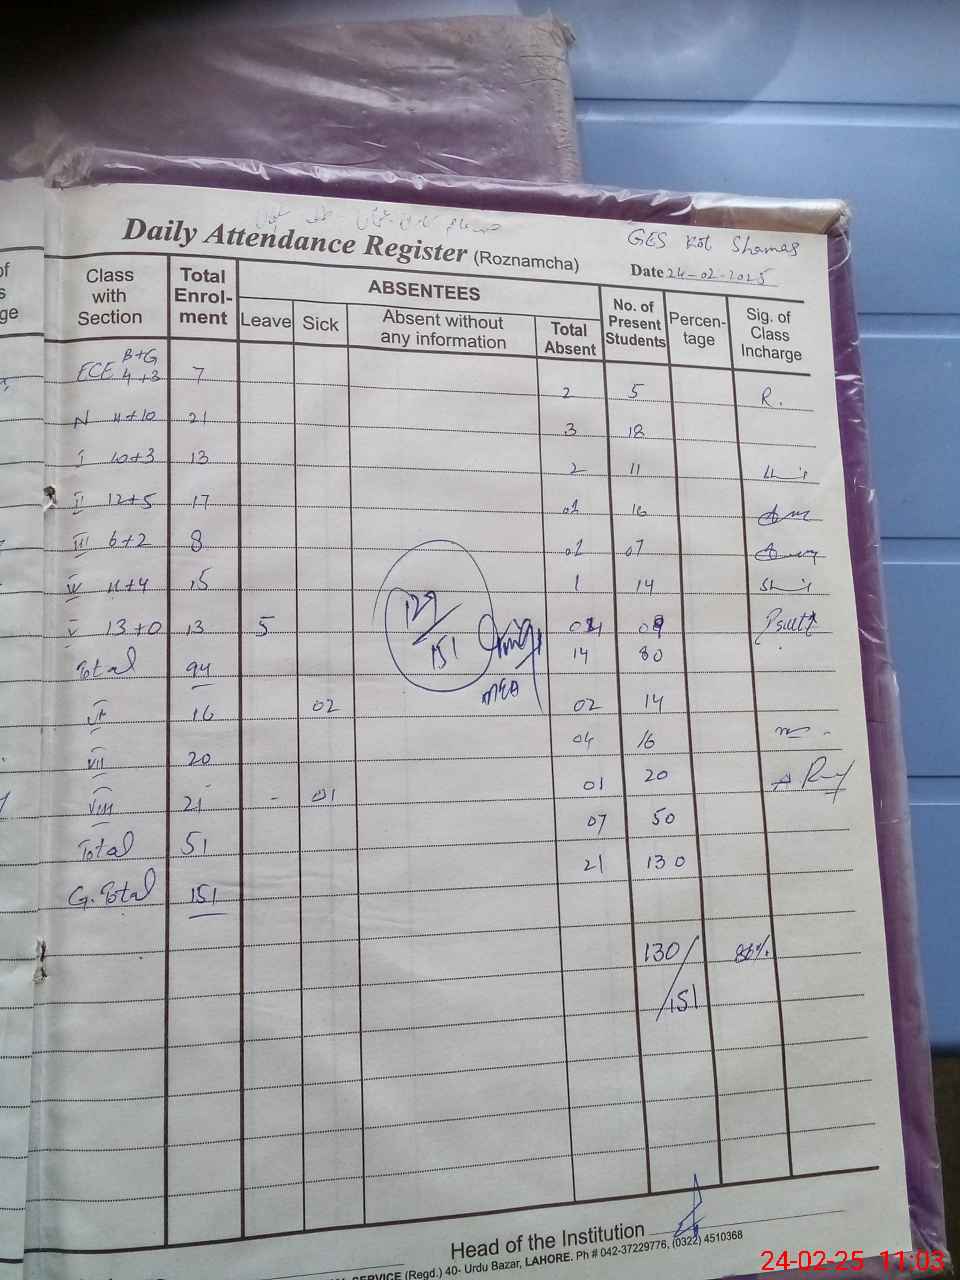 GES Kot Shamas
Daily Attendance Register (Roznamcha)
Date 24-02-2025
Class with Section Total Enrol-ment ABSENTEES No. of Present Students Percen-tage Sig. of Class Incharge
Leave Sick Absent without any information Total Absent
B+G
ECE 4+3 7 2 5 R.
N 11+10 21 3 18
I 10+3 13 2 11
II 12+5 17 01 16
III 6+2 8 01 07
IV 11+4 15 1 14
V 13+0 13 5 04 09
Total 94 14 80
VI 16 02 02 14
VII 20 04 16
VIII 21 - 01 01 20
Total 51 07 50
G.Total 151 21 130
129/151
MEA
130/151 86%
Head of the Institution
SERVICE (Regd.) 40- Urdu Bazar, LAHORE. Ph # 042-37229776, (0322) 4510368
24-02-25 11:03